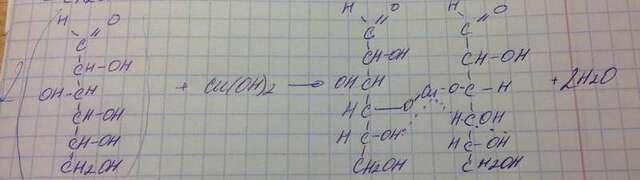 H O H O H O
C C C
CH-OH CH-OH CH-OH
2 OH-CH + Cu(OH)2 → OHCH Cu-O-C-H + 2H2O
CH-OH H C-O H C OH
CH-OH H C-OH H C-OH
CH2OH CH2OH CH2OH